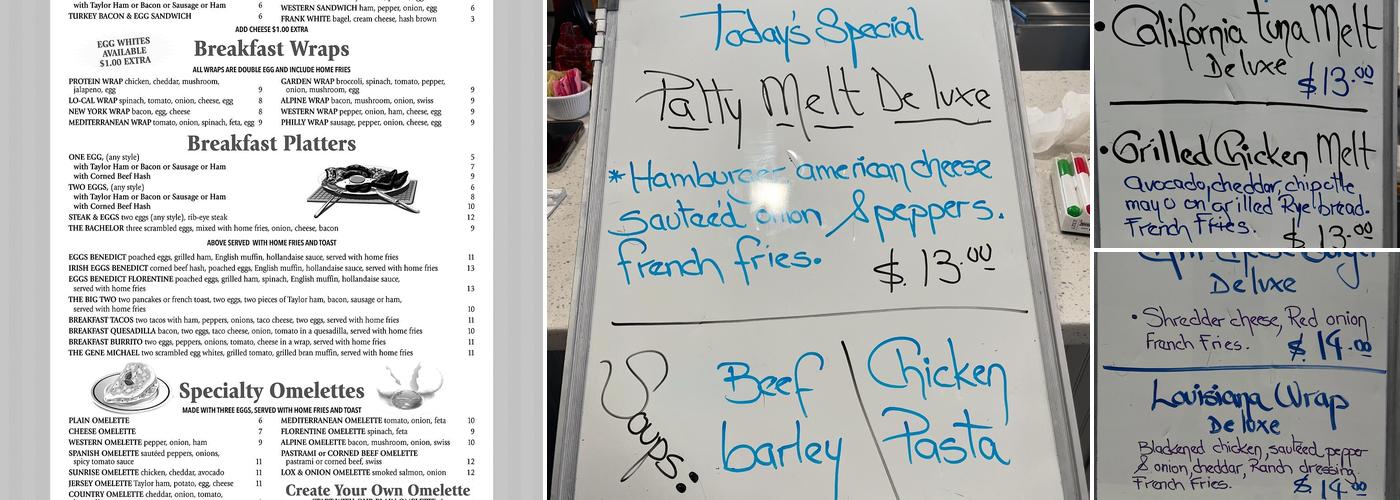 with Taylor Ham or Bacon or Sausage or Ham 6
TURKEY BACON & EGG SANDWICH 6
WESTERN SANDWICH ham, pepper, onion, egg 6
FRANK WHITE bagel, cream cheese, hash brown 3
ADD CHEESE $1.00 EXTRA
EGG WHITES
AVAILABLE
$1.00 EXTRA
Breakfast Wraps
ALL WRAPS ARE DOUBLE EGG AND INCLUDE HOME FRIES
PROTEIN WRAP chicken, cheddar, mushroom,
jalapeno, egg 9
LO-CAL WRAP spinach, tomato, onion, cheese, egg 8
NEW YORK WRAP bacon, egg, cheese 8
MEDITERRANEAN WRAP tomato, onion, spinach, feta, egg 9
GARDEN WRAP broccoli, spinach, tomato, pepper,
onion, mushroom, egg 9
ALPINE WRAP bacon, mushroom, onion, swiss 9
WESTERN WRAP pepper, onion, ham, cheese, egg 9
PHILLY WRAP sausage, pepper, onion, cheese, egg 9
Breakfast Platters
ONE EGG, (any style) 5
with Taylor Ham or Bacon or Sausage or Ham 7
with Corned Beef Hash 9
TWO EGGS, (any style) 6
with Taylor Ham or Bacon or Sausage or Ham 8
with Corned Beef Hash 10
STEAK & EGGS two eggs (any style), rib-eye steak 12
THE BACHELOR three scrambled eggs, mixed with home fries, onion, cheese, bacon 9
ABOVE SERVED WITH HOME FRIES AND TOAST
EGGS BENEDICT poached eggs, grilled ham, English muffin, hollandaise sauce, served with home fries 11
IRISH EGGS BENEDICT corned beef hash, poached eggs, English muffin, hollandaise sauce, served with home fries 13
EGGS BENEDICT FLORENTINE poached eggs, grilled ham, spinach, English muffin, hollandaise sauce,
served with home fries 13
THE BIG TWO two pancakes or french toast, two eggs, two pieces of Taylor ham, bacon, sausage or ham,
served with home fries 10
BREAKFAST TACOS two tacos with ham, peppers, onions, taco cheese, two eggs, served with home fries 11
BREAKFAST QUESADILLA bacon, two eggs, taco cheese, onion, tomato in a quesadilla, served with home fries 10
BREAKFAST BURRITO two eggs, peppers, onions, tomato, cheese in a wrap, served with home fries 11
THE GENE MICHAEL two scrambled egg whites, grilled tomato, grilled bran muffin, served with home fries 11
Specialty Omelettes
MADE WITH THREE EGGS, SERVED WITH HOME FRIES AND TOAST
PLAIN OMELETTE 6
CHEESE OMELETTE 7
WESTERN OMELETTE pepper, onion, ham 9
SPANISH OMELETTE sautéed peppers, onions,
spicy tomato sauce 11
SUNRISE OMELETTE chicken, cheddar, avocado 11
JERSEY OMELETTE Taylor ham, potato, egg, cheese 11
COUNTRY OMELETTE cheddar, onion, tomato,
MEDITERRANEAN OMELETTE tomato, onion, feta 10
FLORENTINE OMELETTE spinach, feta 9
ALPINE OMELETTE bacon, mushroom, onion, swiss 10
PASTRAMI or CORNED BEEF OMELETTE
pastrami or corned beef, swiss 12
LOX & ONION OMELETTE smoked salmon, onion 12
Create Your Own Omelette
Today's Special
Patty Melt De luxe
*Hamburger american cheese
Sauteéd onion & peppers.
french fries. $.13.00
Soups:
Beef
barley
Chicken
Pasta
• California tuna Melt
De luxe $13.00
• Grilled Chicken Melt
avocado, cheddar, chipotle
mayo on grilled Rye bread.
French Fries. $13.00
Deluxe
• Shredder cheese, Red onion
French Fries. $14.00
Louisiana Wrap
De luxe
Blackened chicken, sauteéd pepper
& onion, cheddar, Ranch dressing.
French Fries. $14.00